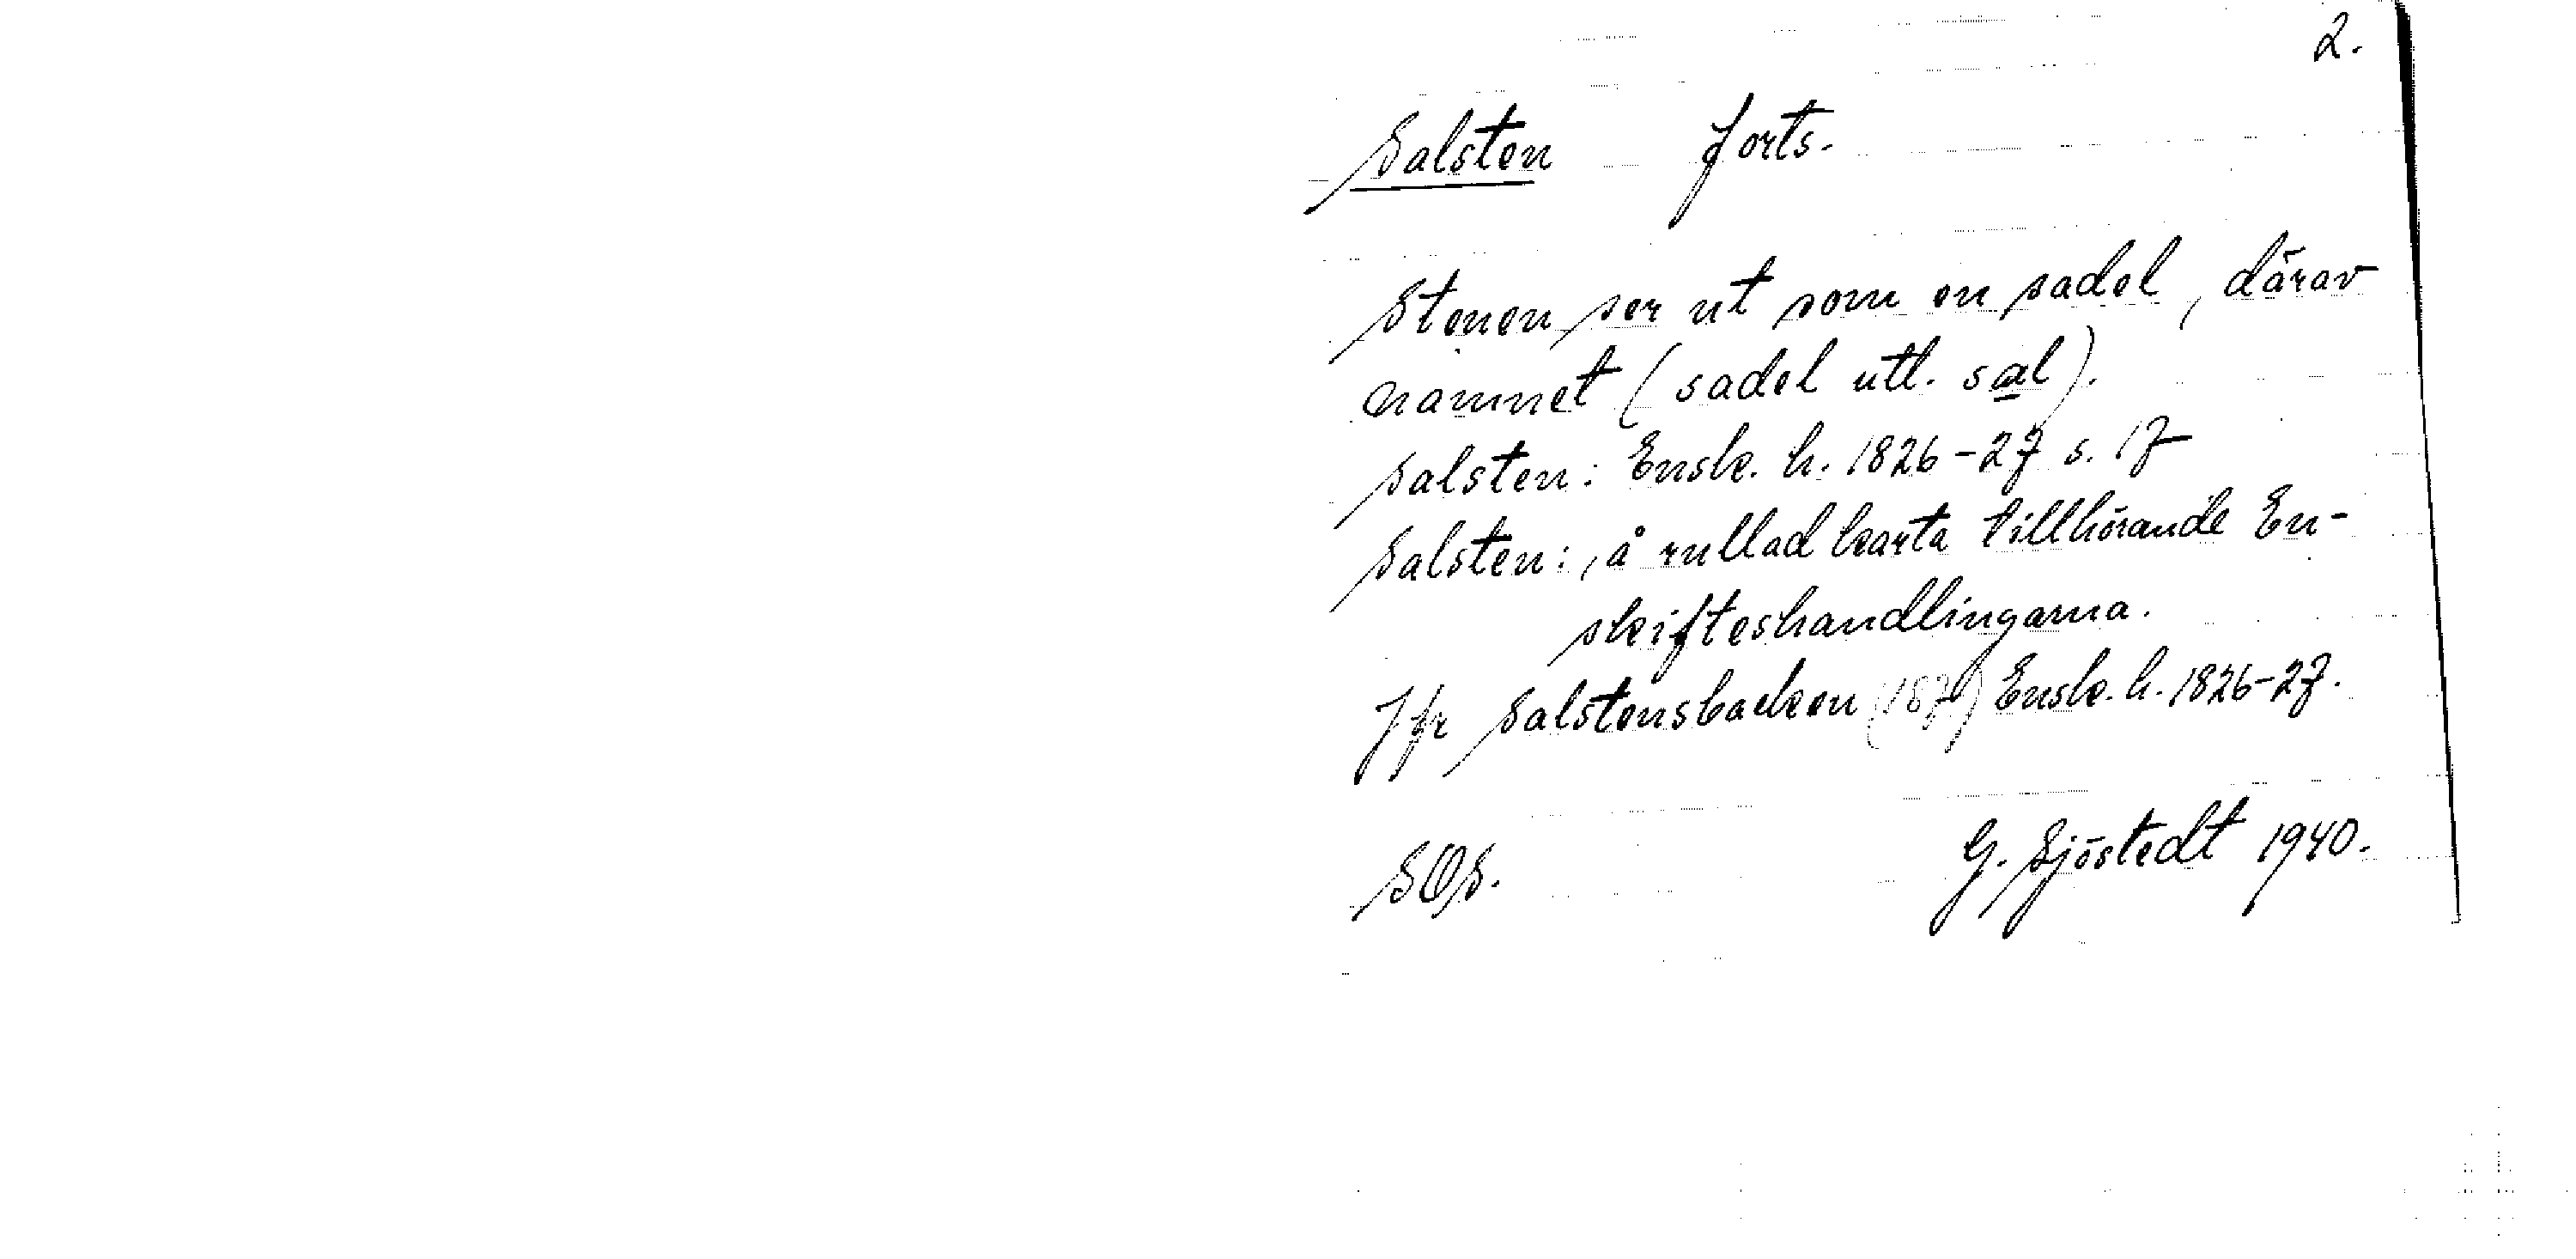 2.
Salsten forts.
Stenen ser ut som en sadel, därav
namnet (sadel utl. sal).
Salsten: Ensk. h. 1826-27 s. 17
Salsten:, å rullad karta tillhörande En-
skifteshandlingarna.
Jfr Salstensbacken (187) Ensk. h. 1826-27.
SOS. G. Sjöstedt 1940.